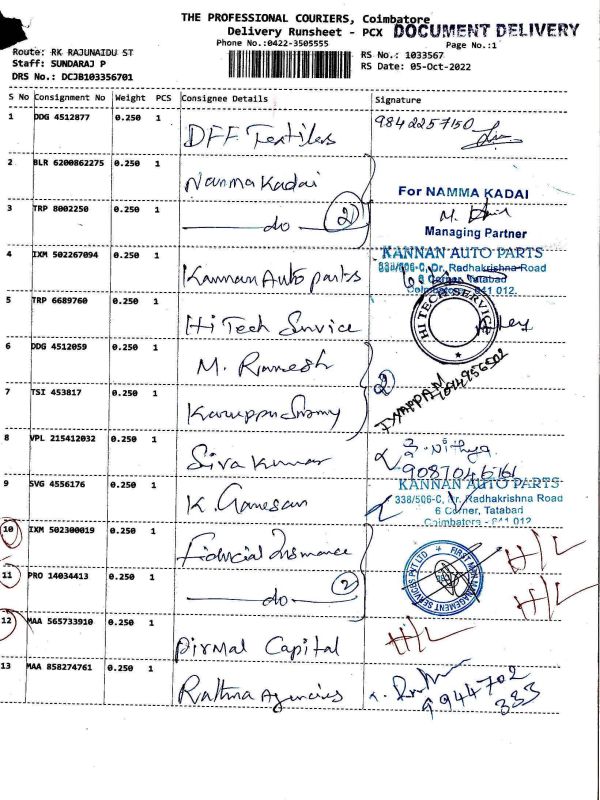 THE PROFESSIONAL COURIERS, Coimbatore
Delivery Runsheet - PCX DOCUMENT DELIVERY
Phone No.:0422-3505555 Page No.:1
Route: RK RAJUNAIDU ST RS No.: 1033567
Staff: SUNDARAJ P RS Date: 05-Oct-2022
DRS No.: DCJB103356701
S No Consignment No Weight PCS Consignee Details Signature
1 DDG 4512877 0.250 1 DFF Textiles 9842257150
2 BLR 6200862275 0.250 1 Namma Kadai For NAMMA KADAI
3 TRP 8002250 0.250 1 do 2 M.
Managing Partner
4 IXM 502267094 0.250 1 Kannan Auto parts KANNAN AUTO PARTS
338/506-C, Dr. Radhakrishna Road
6 Corner, Tatabad
Coimbatore - 641 012.
5 TRP 6689760 0.250 1 Hi Tech Service HI TECH SERVICE
6 DDG 4512059 0.250 1 M. Ramesh
7 TSI 453817 0.250 1 Karuppuswamy 2 IYAPPAN
8 VPL 215412032 0.250 1 Sivakumar Nithya
9087046161
9 SVG 4556176 0.250 1 K. Ganesan KANNAN AUTO PARTS
338/506-C, Dr. Radhakrishna Road
6 Corner, Tatabad
Coimbatore - 641 012
10 IXM 502300019 0.250 1 Fiducial Insurance H/L
11 PRO 14034413 0.250 1 do 2 FIRST MAN MANAGEMENT SERVICES PVT LTD H/L
12 MAA 565733910 0.250 1 Dirmal Capital H/L
13 MAA 858274761 0.250 1 Rathna Agencies 9944702
333